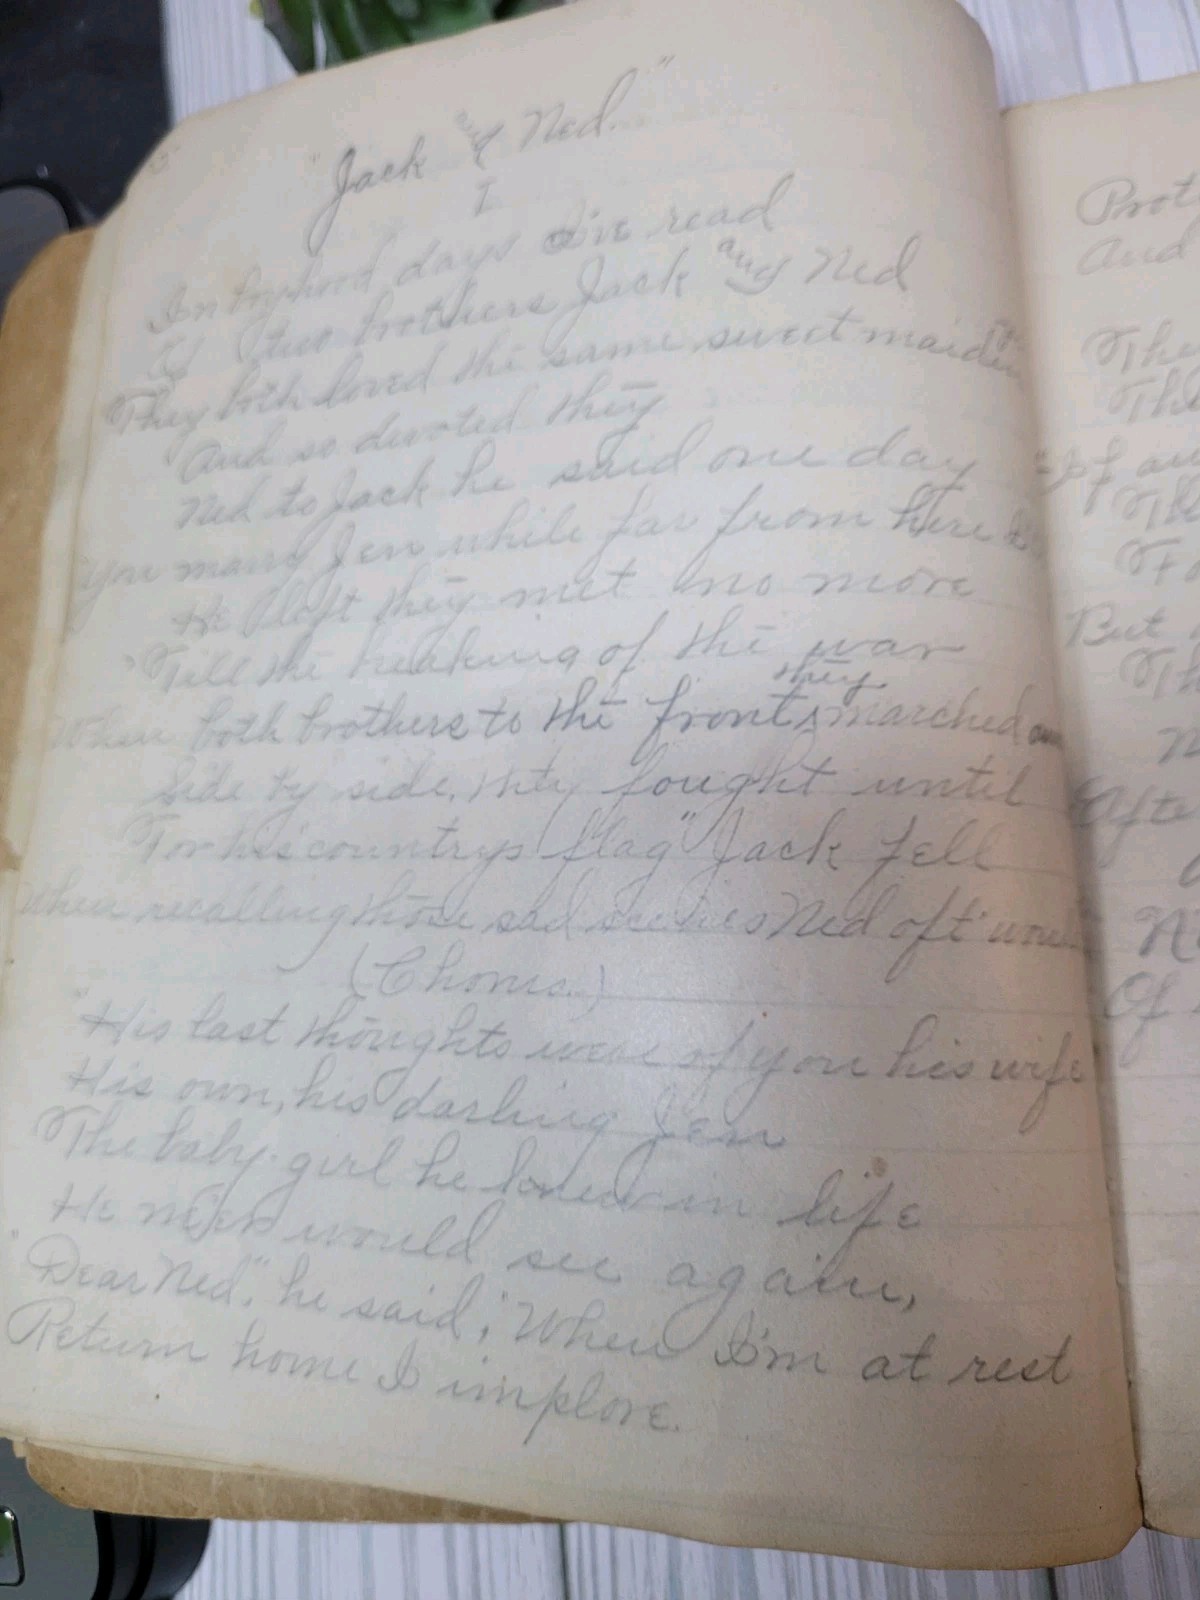 "Jack and Ned."
I
In boyhood days I've read
Of two brothers Jack and Ned
They both loved the same sweet maiden
And so devoted they
Ned to Jack he said one day
You marry Jen while far from here I
He left they met no more
Till the breaking of the war
When both brothers to the front, they marched
Side by side, they fought until
For his countrys "flag" Jack fell
When recalling those sad scenes Ned oft'
(Chorus.)
"His last thoughts were of you his wife
His own, his darling Jen
The baby girl he loved in life
He ne'er would see again,
"Dear Ned", he said, "When I'm at rest
Return home I implore.
And
But
Of